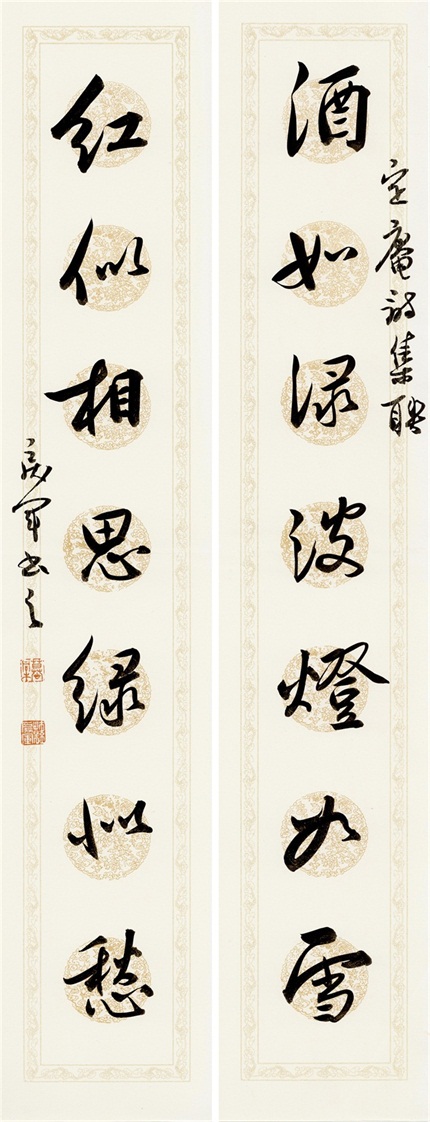 定庵詩集聯
酒如渌波燈如雪
红似相思绿似愁
軍書之